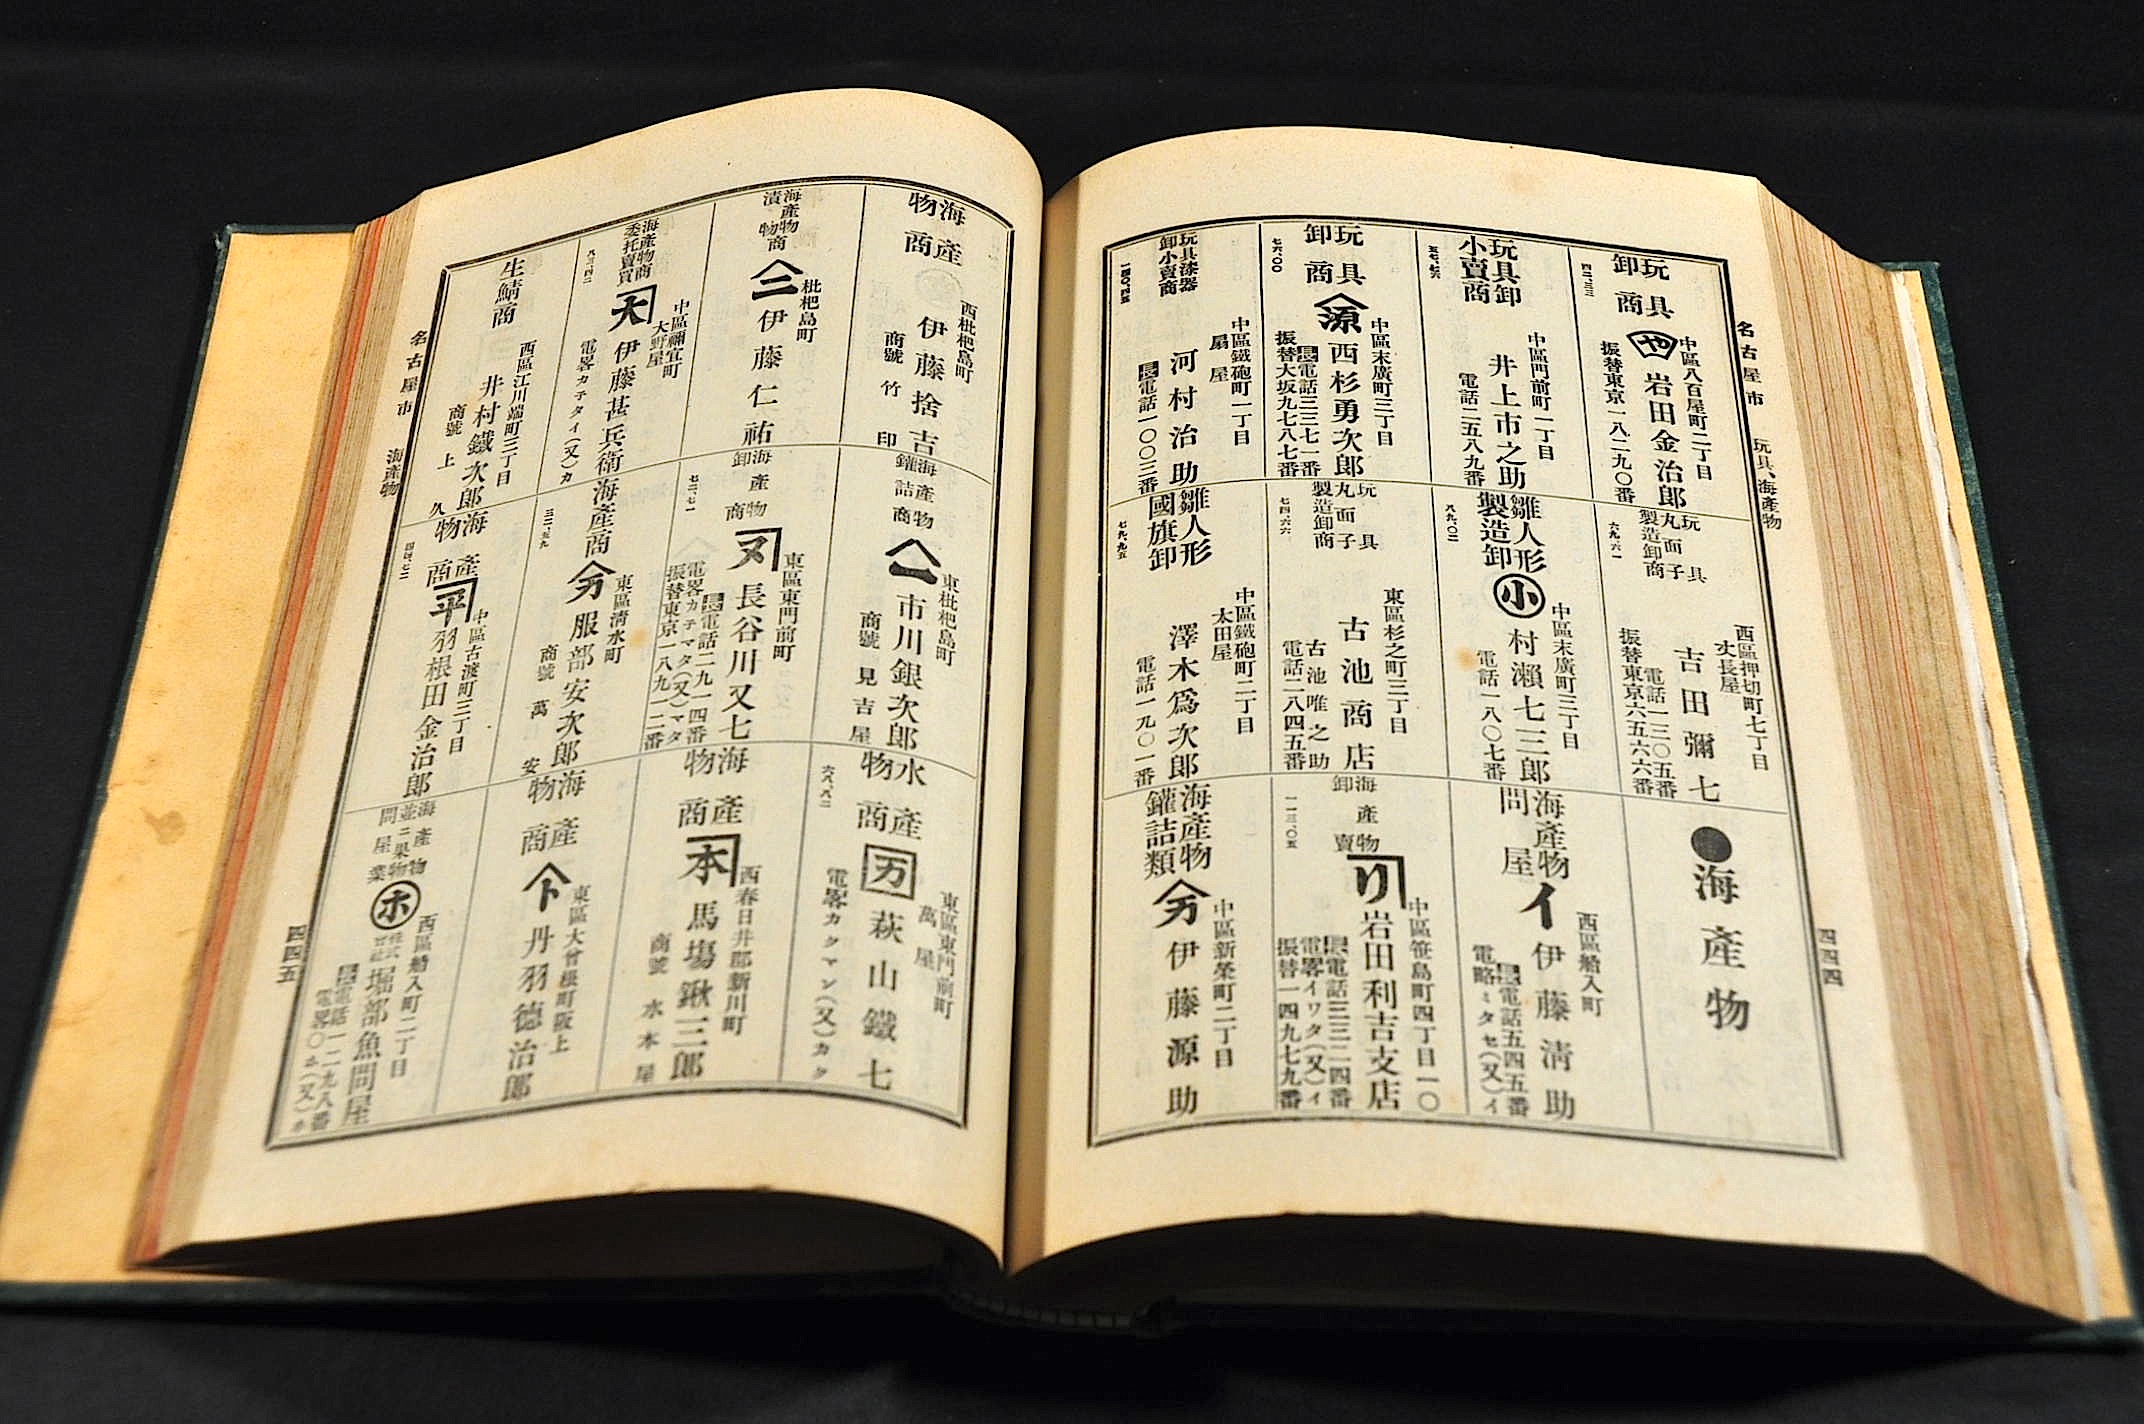 名古屋市 玩具、海產物
四四四
玩具
卸商
中區八百屋町二丁目
や
岩田金治郎
振替東京一八二九〇番
四三、三三
玩具卸
小賣商
中區門前町一丁目
井上市之助
電話二五八九番
五七、七六
玩具
卸商
中區末廣町三丁目
源
西杉勇次郎
長電話三三七一番
振替大坂九七八七番
七六、〇〇
玩具漆器
卸小賣商
中區鐵砲町一丁目
扇屋
河村治助
長電話一〇〇三番
玩具
丸面子
製造卸商
西區押切町七丁目
丈長屋
吉田彌七
電話一三〇五番
振替東京六五六六番
六九、六一
雛人形
製造卸
小
中區末廣町三丁目
村瀨七三郎
電話一八〇七番
八九、〇二
玩具
丸面子
製造卸商
東區杉之町三丁目
古池商店
古池唯之助
電話二八四五番
七四、六六
雛人形
國旗卸
中區鐵砲町二丁目
太田屋
澤木爲次郎
電話一九〇一番
七九、九五
●海產物
海產物
問屋
イ
西區船入町
伊藤淸助
長電話五四五番
電略ミタセ(又)イ
海產物
卸賣
リ
中區笹島町四丁目一〇
岩田利吉支店
長電話三三二四番
電畧イワタ(又)イ
振替一四九七九番
一一三、〇五
海產物
鑵詰類
万
中區新榮町二丁目
伊藤源助
名古屋市 海產物
四四五
海產
物商
西枇杷島町
伊藤捨吉
商號 竹印
海產物
漬物商
二
枇杷島町
伊藤仁祐
海產物商
委托賣買
大
中區禰宜町
大野屋
伊藤甚兵衛
電畧カチタイ(又)カ
八三、四二
生鯖商
西區江川端町三丁目
井村鐵次郎
商號 上久
海產物
鑵詰商
一
東枇杷島町
市川銀次郎
商號 見吉屋
海產物
卸商
又
東區東門前町
長谷川又七
長電話二九一四番
電畧カチマタ(又)マタ
振替東京一八九一二番
七二、七一
海產商
万
東區淸水町
服部安次郎
商號 萬安
三二、五九
海產
物商
平
中區古渡町三丁目
羽根田金治郎
四四、七二
水產
物商
万
東區東門前町
萬屋
萩山鐵七
電畧カクマン(又)カク
六八、八二
海產
物商
本
西春日井郡新川町
馬塲鍬三郎
商號 水本屋
海產
物商
ト
東區大曾根町阪上
丹羽德治郎
海產物
並ニ果物
問屋業
ホ
西區船入町二丁目
株式會社
堀部魚問屋
長電話一二九八番
電畧〇ホ(又)ホ